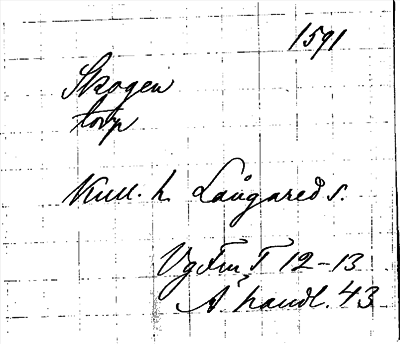 1591
Skogen
torp
Kull. h Långared s.
VgFmT 12-13
A. handl. 43